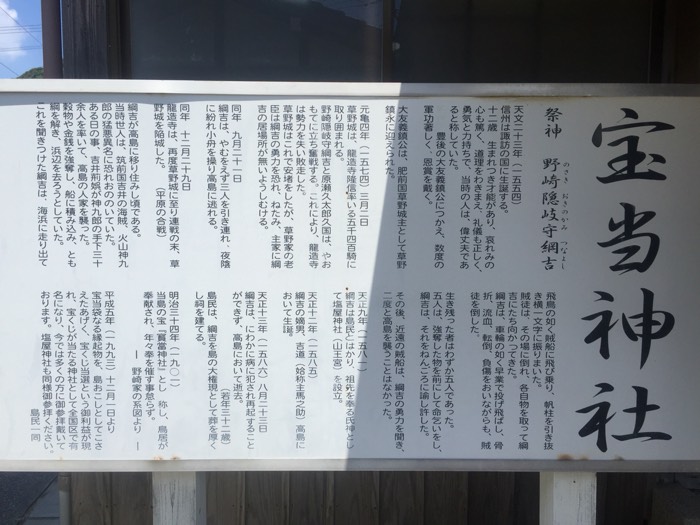 宝当神社
祭神　野崎隠岐守綱吉
のさき　おきのかみ　つなよし
天文二十三年（一五五四）
信州は諏訪の国に生誕する。
十二歳　生まれつき才能があり、哀れみの
心も篤く、道理をわきまえ、礼儀も正しく、
勇気と力持ちで、当時の人は、偉丈夫であ
ると称していた。
豊後の大友義鎮公につかえ、数度の
軍功著しく、恩賞を戴く。
大友義鎮公は、肥前国草野城主として草野
鎮永に迎えられた。
元亀四年（一五七四）二月二日
草野城は、龍造寺隆信率いる五千四百騎に
取り囲まれる。
野崎隠岐守綱吉と原瀬久太郎久国は、やお
もてに立ち奮戦する。これにより、龍造寺
は勢力を失い敗走した。
草野城はこれで安堵をしたが、草野家の老
臣は綱吉の勇力を恐れ、ねたみ、主家に綱
吉の居場所が無いようしむける。
同年　九月二十一日
綱吉は、やむをえず三人を引き連れ、夜陰
に紛れ小舟を操り高島に逃れる。
同年　十二月二十九日
龍造寺は、再度草野城に至り連戦の末、草
野城を陥城した。　（平原の合戦）
綱吉が高島に移り住みし頃である。
当時世人は、筑前国吉井の海賊、火山神九
郎の猛悪異名に恐れおののいていた。
ある日の事、吉井形娯が神九郎の手下三十
余人を率いて、高島の人家を襲った。
穀物や金銭を強奪し、船に積み込み、とも
綱を解き、浜辺を去ろうとしていた。
これを聞きつけた綱吉は、海浜に走り出て
飛鳥の如く賊船に飛び乗り、帆柱を引き抜
き横一文字に振りまいた。
賊徒は、その場に倒れ、各自物を取って綱
吉にたち向かってきた。
綱吉は、車輪の如く早業で投げ飛ばし、骨
折、流血、転倒、負傷をおいながらも、賊
徒を倒した。
生き残った者はわずか五人であった。
五人は、強奪した物を前にして命乞いをし、
綱吉は、それをねんごろに諭し許した。
その後、近遠の賊船は、綱吉の勇力を聞き、
二度と高島を襲うことはなかった。
天正九年（一五八一）
綱吉は島民とはかり、祖先を奉る氏神とし
て塩屋神社（山王宮）を設立。
天正十三年（一五八五）
綱吉の嫡男、吉道（始称主馬之助）高島に
おいて生誕。
天正十三年（一五八八）八月二十三日
綱吉は、にわかに病に犯され再起すること
ができず、高島において逝去。
（若年三十二歳）
島民は、綱吉を島の大権現として葬を厚く
し祠を建てる。
明治三十四年（一九〇一）
当島の宝「寳當神社」と、称し、鳥居が
奉献され、年々奉を催す事怠らず。
― 野崎家の系図より ―
平成五年（一九九三）十二月一日より
宝当袋なる縁起物を、島おこしとしてこさ
えたあげく、宝くじ当選という御利益が現
れ、宝くじが当たる神社として全国区で有
名になり、今では多くの方に御参拝戴いて
おります。塩屋神社も同様御参拝ください。
島民一同